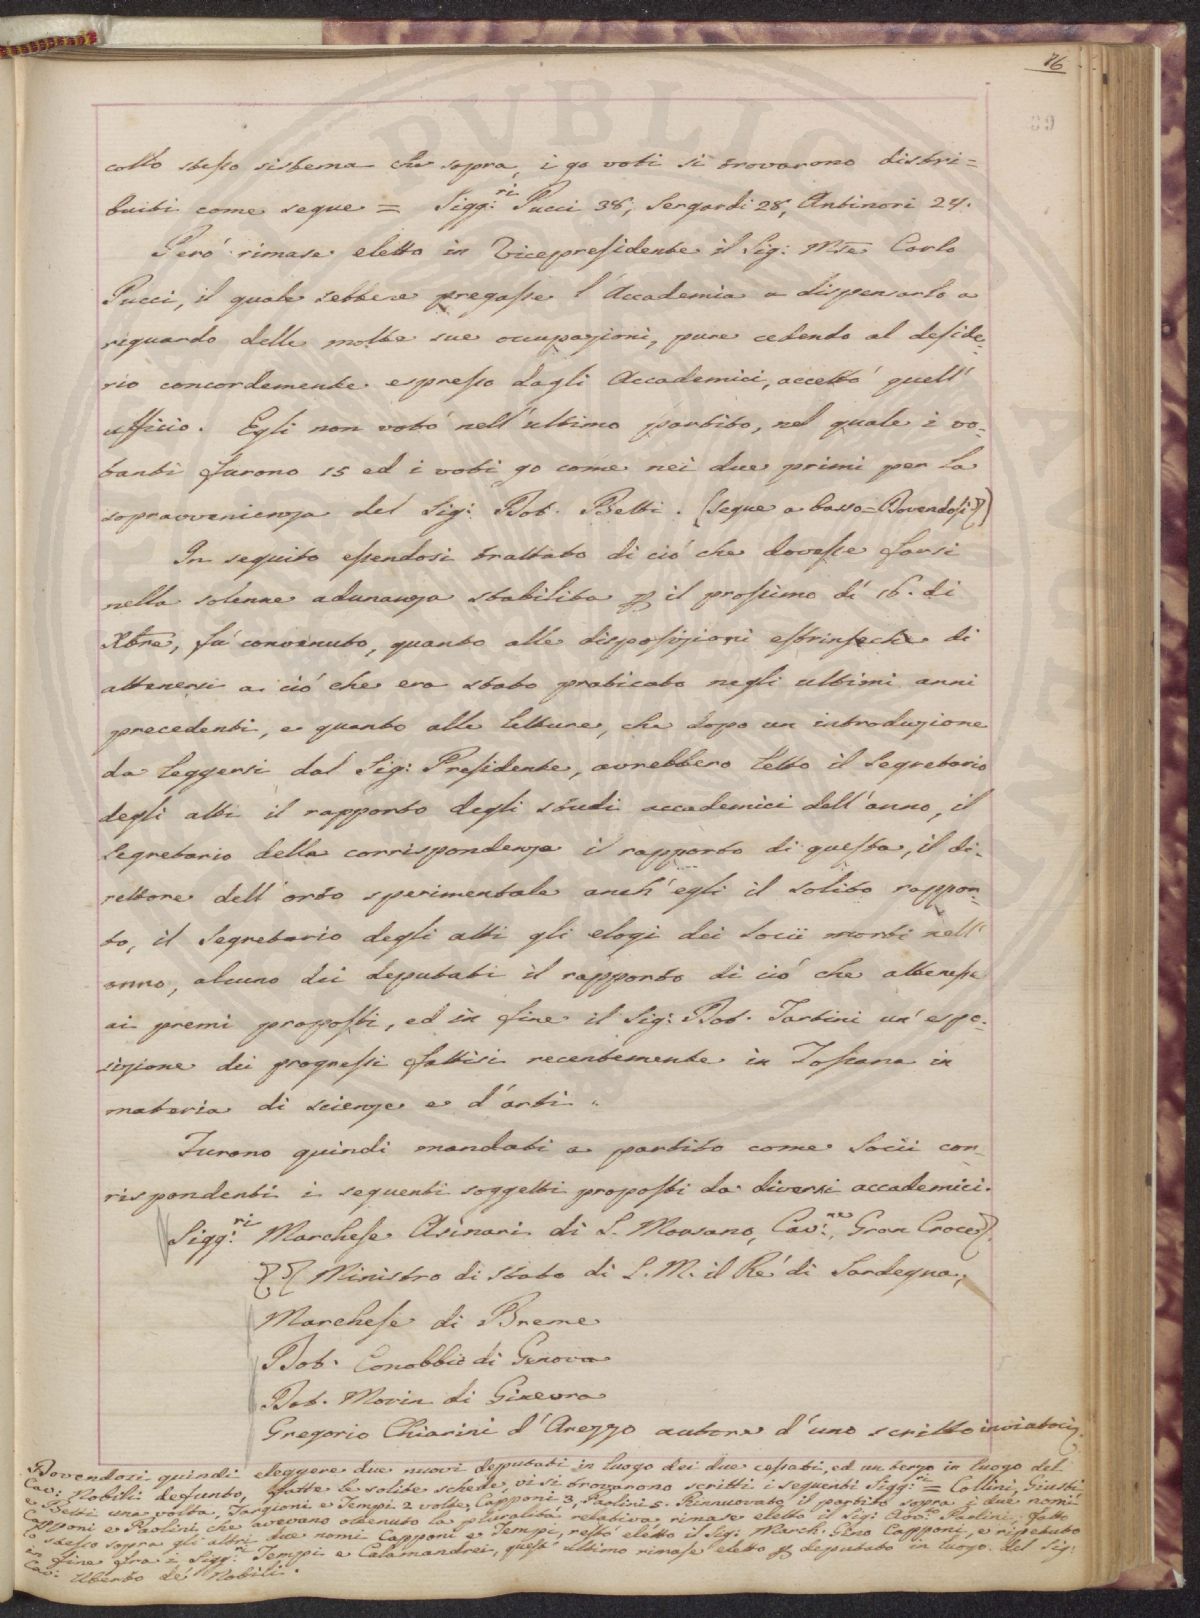 76
89
collo stesso sistema che sopra, i 90 voti si trovarono distri=
buiti come segue = Sigg:ri Pucci 38, Sergardi 28, Antinori 24.
Però rimase eletto in Vicepresidente il Sig: Mse Carlo
Pucci, il quale sebbene pregasse l'Accademia a dispensarlo a
riguardo delle molte sue occupazioni, pure cedendo al deside-
rio concordemente espresso dagli Accademici, accettò quell'
ufficio. Egli non votò nell'ultimo partito, nel quale i vo-
tanti furono 15 ed i voti 90 come nei due primi per la
sopravvenienza del Sig: Dot. Betti. (segue a basso = Dovendosi)
In seguito essendosi trattato di ciò che dovesse farsi
nella solenne adunanza stabilita p il prossimo dì 16. di
Xbre, fù convenuto, quanto alle disposizioni estrinseche di
attenersi a ciò che era stato praticato negli ultimi anni
precedenti, e quanto alle letture, che dopo un introduzione
da leggersi dal Sig: Presidente, avrebbero letto il Segretario
degli atti il rapporto degli studi accademici dell'anno, il
Segretario della corrispondenza il rapporto di questa, il di-
rettore dell'orto sperimentale anch'egli il solito rappor-
to, il Segretario degli atti gli elogi dei Socii morti nell'
anno, alcuno dei deputati il rapporto di ciò che attenesse
ai premi proposti, ed in fine il Sig: Dot. Tartini un'espo-
sizione dei progressi fattisi recentemente in Toscana in
materia di scienze e d'arti.
Furono quindi mandati a partito come Socii cor-
rispondenti i seguenti soggetti proposti da diversi accademici.
Sigg:ri Marchese Asinari di S. Marsano, Cav:re, Gran Croce
Ministro di stato di S. M. il Rè di Sardegna,
Marchese di Breme
Dot. Canobbio di Genova
Dot. Morin di Ginevra
Gregorio Chiarini d'Arezzo autore d'uno scritto inviatoci.
Dovendosi quindi eleggere due nuovi deputati in luogo dei due cessati, ed un terzo in luogo del
Cav: Nobili defunto, fatte le solite schede, vi si trovarono scritti i seguenti Sigg:ri = Collini, Giusti,
e Betti una volta, Targioni e Tempi 2 volte, Capponi 3, Paolini 5. Rinnuovato il partito sopra i due nomi
Capponi e Paolini, che avevano ottenuto la pluralità relativa, rimase eletto il Sig: Avv. Paolini; fatto
lo stesso sopra gli altri due nomi Capponi e Tempi, restò eletto il Sig: March: Gino Capponi, e ripetuto
in fine fra i Sigg:ri Tempi e Calamandrei, quest'ultimo rimase eletto p deputato in luogo del Sig:
Cav: Uberto de' Nobili.